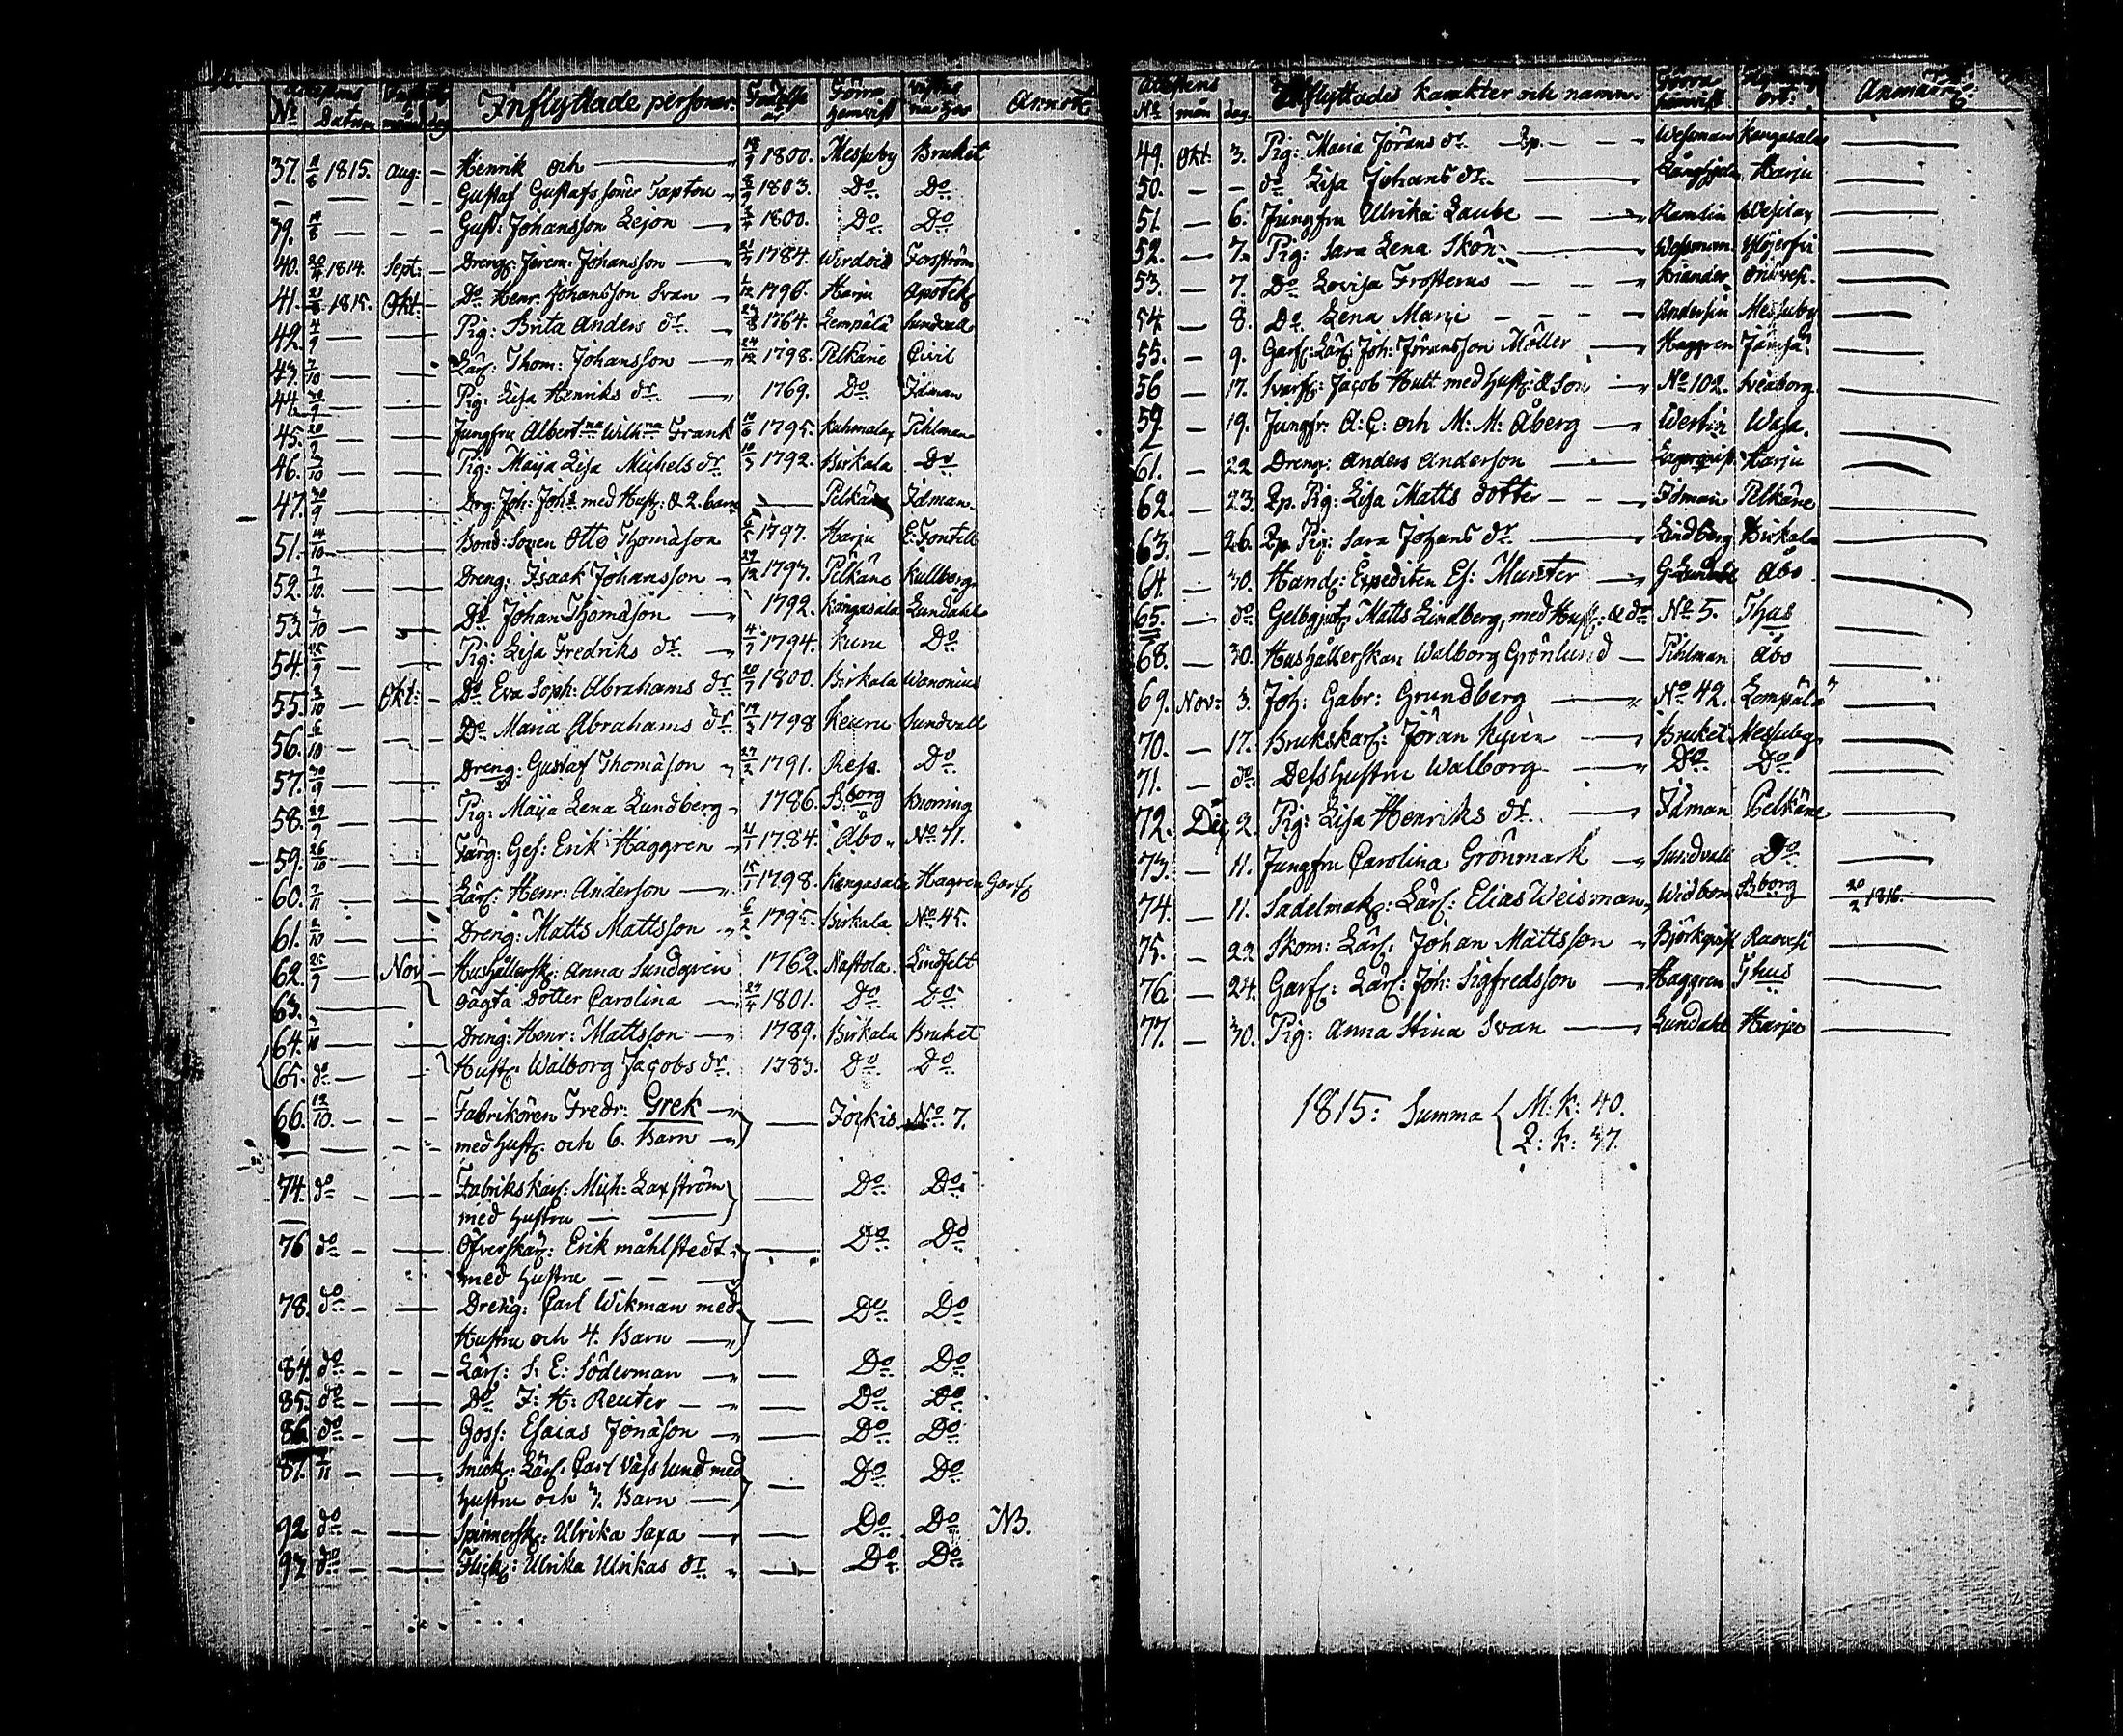 N:o Datum Inflyttade personer. Födelse år Förra hemvist
37. 11/8 1815. Aug: – Henrik och — 18/9 1800. Messuby Bruket
– — – – Gustaf Gustafs söner Taxton 8/9 1803. D:o D:o
39. 14/8 — – – Gust: Johansson Lejon — 1800. D:o D:o
40. 1814. Sept: – Dreng: Jerem: Johansson — 1784. Wirdois Forsström
41. 1815. Okt: – D:o Henr: Johansson Svan – 1/12 1796. Harju Apotek
42. 4/9 — — Pig: Brita Anders dr. – 1764. Lempälä Sundvall
43. 7/10 — — Lärl: Thom: Johansson — 24/12 1798. Pelkäne Civil
44. 30/9 — — Pig: Lisa Henriks dr. — 1769. D:o Idman
45. — — Jungfru Albert:na Wilh:na Frank 10/6 1795. Kuhmalax Pihlman
46. 3/10 — — Pig: Maija Lisa Michels dr. 1792. Birkala D:o
47. 30/9 — — Drg: Joh: Joh:s med Hust: & 2. barn — Pelkäne Idman.
51. 14/10 — — Bond: Sonen Otto Thomäson 1797. Harju E: Fontell
52. 7/10. — — Dreng: Isaak Johansson – 27/12 1793. Pelkäne Kullberg
53. 7/10 — — D:o Johan Thomäson — 1792. Kangasala Lundahl
54. — — Pig: Lisa Fredriks dr. – 1794. Kuru D:o
55. 3/10 — Okt: – D:o Eva Soph: Abrahams dr. 1800. Birkala Wanonius
56. 6/10 — – – D:o Maria Abrahams dr. 1798 Keuru Sundvall
57. 30/9 — — Dreng: Gustaf Thomäson 27/2 1791. Reso. D:o
58. 29/9 — — Pig: Maija Lena Lundberg – 1786. B:borg Knorring
59. 26/10 — — Färg: Ges: Erik Häggren – 21/1 1784. Åbo. N:o 71.
60. 2/11 — — Lärl: Henr: Anderson — 15/1 1798. Kangasala Hagren Garf:
61. 2/10 — — Dreng: Matts Mattsson 6/2 1795. Birkala N:o 45.
62. 25/9 — Nov – Hushållersk: Anna Sundgren 1762. Nastola Lindfelt
63. — sagta dotter Carolina — 1801. D:o D:o
64. 3/10 — — Dreng: Henr: Mattsson — 1789. Birkala Bruket
65. d:o — – Hust: Walborg Jacobs dr. 1783. D:o D:o
66. 12/10. – – – Fabrikören Fredr: Grek — — Jockis N:o 7.
— — – – med Hust: och 6. Barn —
74. d:o – — Fabrikskarl: Mich: Laxström — D:o D:o
med Hustru — —
76 d:o – — Öfverskär: Erik Måhlstedt — D:o D:o
med Hustru – – —
78. d:o – — Dreng: Carl Wikman med — D:o D:o
Hustru och 4. Barn —
84. d:o – – – Lärl: S. E: Söderman — — D:o D:o
85. d:o – — D:o F: H: Reuter – – — D:o D:o
86. d:o – — Goss: Esaias Jonäson — — D:o D:o
87. 1/11 – — Snick: Lärl: Carl Wässlund med — D:o D:o
Hustru och 3. Barn —
92 d:o – — Spinnersk: Ulrika Saxa — — D:o D:o NB.
93 d:o – — Flick: Ulrika Ulrikas dr. – — D:o D:o
N:o mån dag. Utflyttades karakter och namn. ort:
49. Okt: 3. Pig: Maria Jörans dr. – Wessman Kangasala —
50. – – d:o Lisa Johans dr. — Harju —
51. — 6. Jungfru Ulrika Laube — — Ramlin Wesilax —
52. — 7. Pig: Sara Lena Skön: — Wessman Ylöjerfvi —
53. — 7. D:o Lovisa Frosterus – – – Kriander Orihvesi. —
54 — 8. D:o Lena Marj: – – – – Andersin Messuby —
55. – 9. Garf: Lärl: Joh: Jöransson Möller — Haggren Jämsä. —
56 – 17. Svarf: Jacob Hult med Hust: & Son — N:o 102. Sveaborg. —
59. – 19. Jungfr: A: C: och M: M: Åberg — Westin Wasa. —
61. – 22 Dreng: Anders Anderson — Lagerqvist Harju —
62. — 23. Qp. Pig: Lisa Matts dotter – – – Idman Pelkäne —
63. — 26. Qp. Pig: Sara Johans dr. — Lindberg Birkala —
64. – 30. Hand: Expediten Es: Munster — G. Lundahl Åbo —
65. – d:o Gelbgjut: Matts Lindberg, med Hust: & dr N:o 5. T:hus —
68. — 30. Hushållerskan Walborg Grönlund — Pihlman Åbo —
69. Nov: 3. Joh: Gabr: Grundberg — N:o 42. Lempälä —
70. – 17. Brukskarl: Jöran — Bruket Messuby —
71. – d:o Dess Hustru Walborg — D:o D:o —
72. Dec 2. Pig: Lisa Henriks dr. — Idman Pelkäne —
73. – 11. Jungfru Carolina Grönmark — Sundvall D:o —
74. – 11. Sadelmak: Lärl: Elias Weisman Widbom B:borg 20/2 1816.
75. – 22 Skom: Lärl: Johan Mattsson Björkqvist Raovesi —
76. – 24. Garf: Lärl: Joh: Sigfredsson — Haggren T:hus —
77. – 30. Pig: Anna Stina Svan — Lundahl Harju —
1815: Summa { M: k: 40.
Q: k: 37.